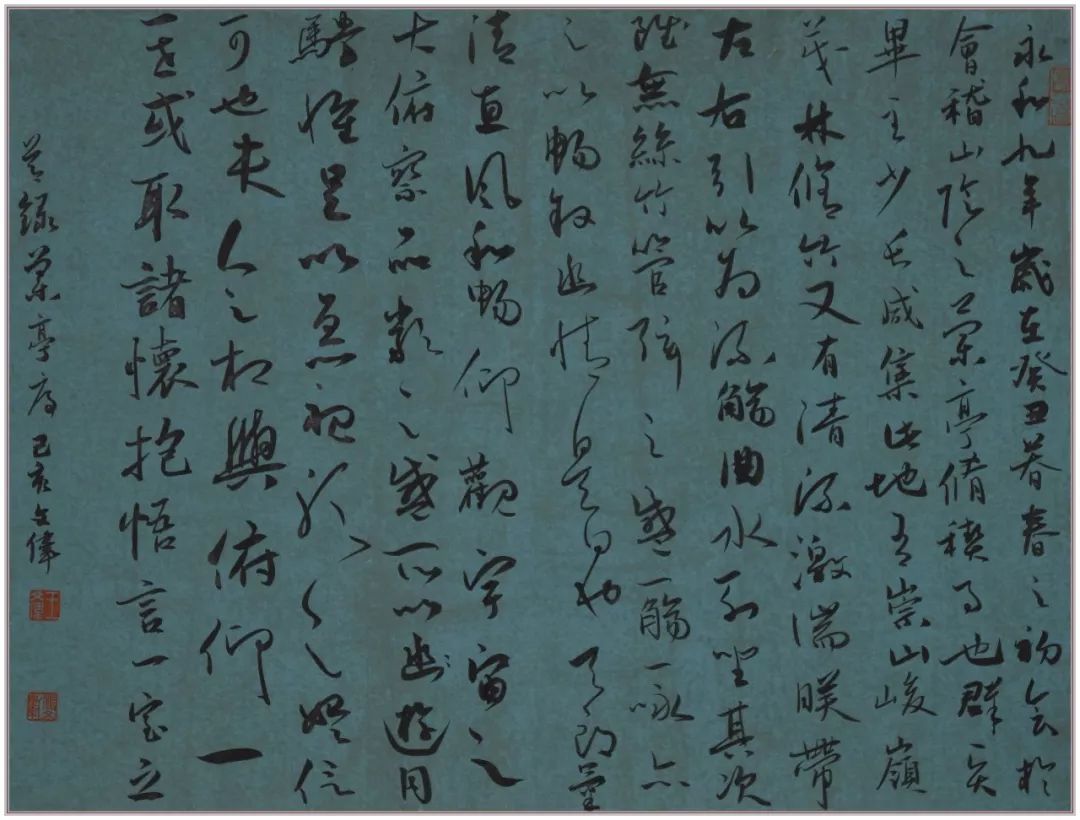 永和九年歲在癸丑暮春之初会於
會稽山陰之蘭亭脩禊事也群賢
畢至少長咸集此地有崇山峻嶺
茂林脩竹又有清流激湍映帶
左右引以為流觴曲水列坐其次
雖無絲竹管弦之盛一觴一詠亦
足以暢敘幽情是日也天朗氣
清惠風和暢仰觀宇宙之
大俯察品類之盛所以幽遊目
騁懷足以極視聽之娛信
可也夫人之相與俯仰一
一世或取諸懷抱悟言一室之
節錄蘭亭序己亥文偉